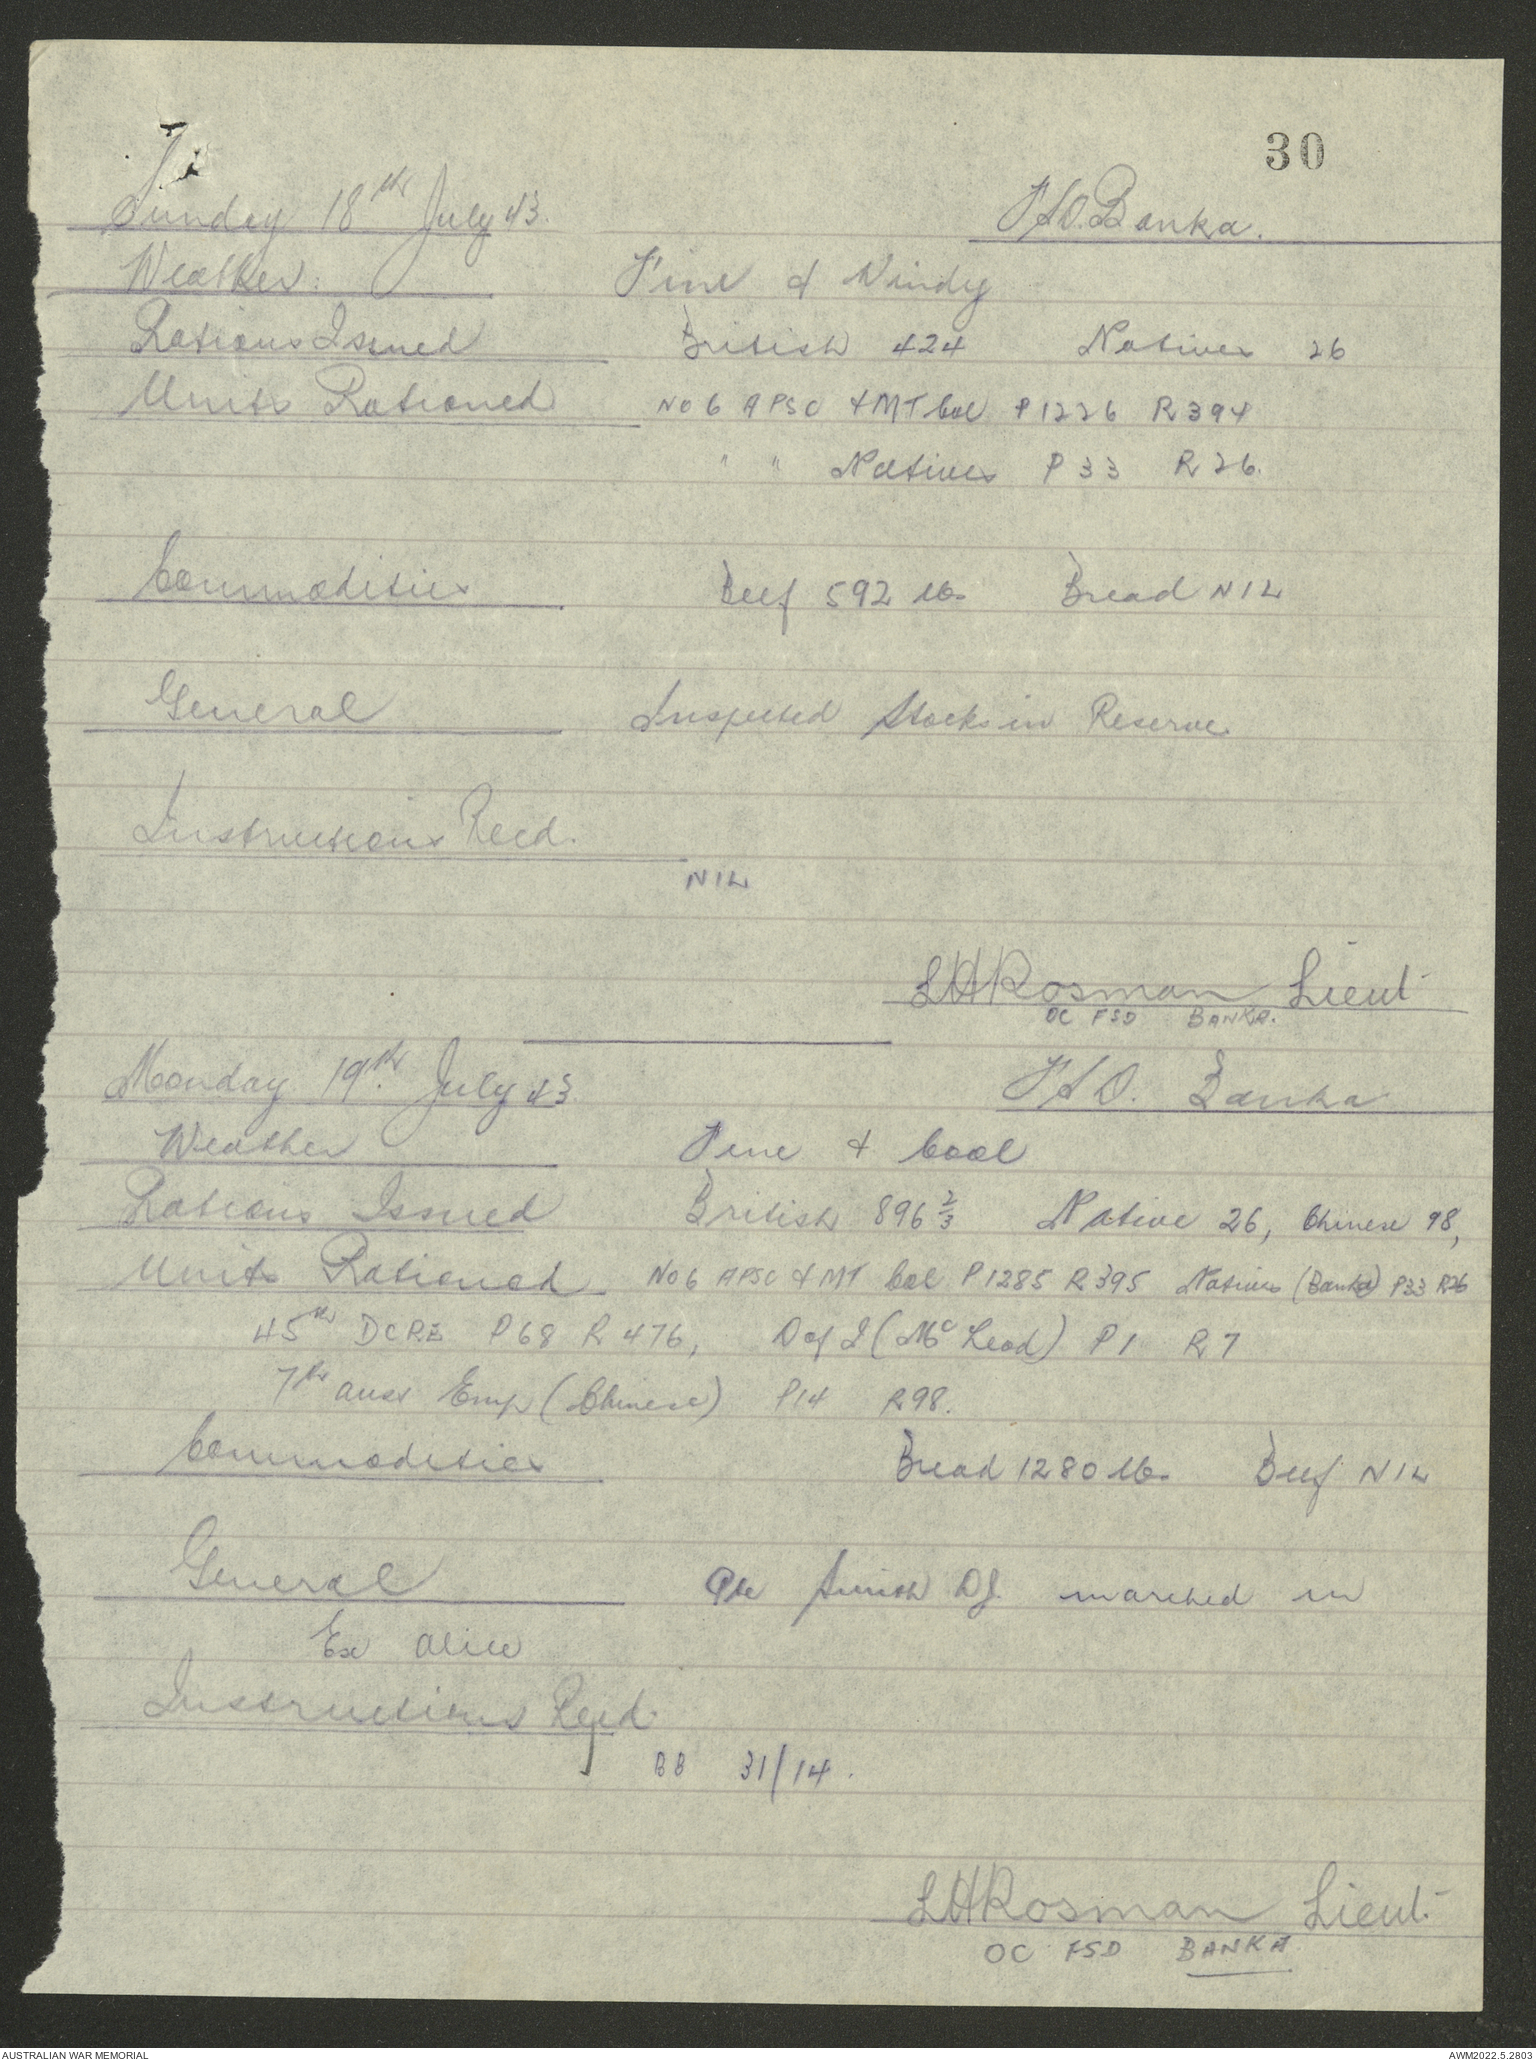 30
Sunday 18th July 43. FSD. Banka.
Weather: Fine & Windy
Rations Issued British 424 Natives 26
Units Rationed NO 6 APSC & MT Col P1226 R394
" " Natives P33 R26.
Commodities Beef 592 lbs Bread NIL
General Inspected Stocks in Reserve
Instructions Recd.
NIL
LHRosman Lieut
OC FSD BANKA.
Monday 19th. July 43 FSD. Banka
Weather Fine & Cool
Rations Issued British 896 2/3 Native 26, Chinese 98,
Units Rationed No 6 APSC & MT Col P1285 R395 Natives (Banka) P33 R26
45th DCRE P68 R476, D of I (Mc Leod) P1 R7
7th Aust Emp (Chinese) P14 R98.
Commodities Bread 1280 lbs Beef NIL
General Pte DJ. marched in
Ex Alice
Instructions Recd.
BB 31/14.
LHRosman Lieut.
OC FSD BANKA.
AUSTRALIAN WAR MEMORIAL AWM2022.5.2803